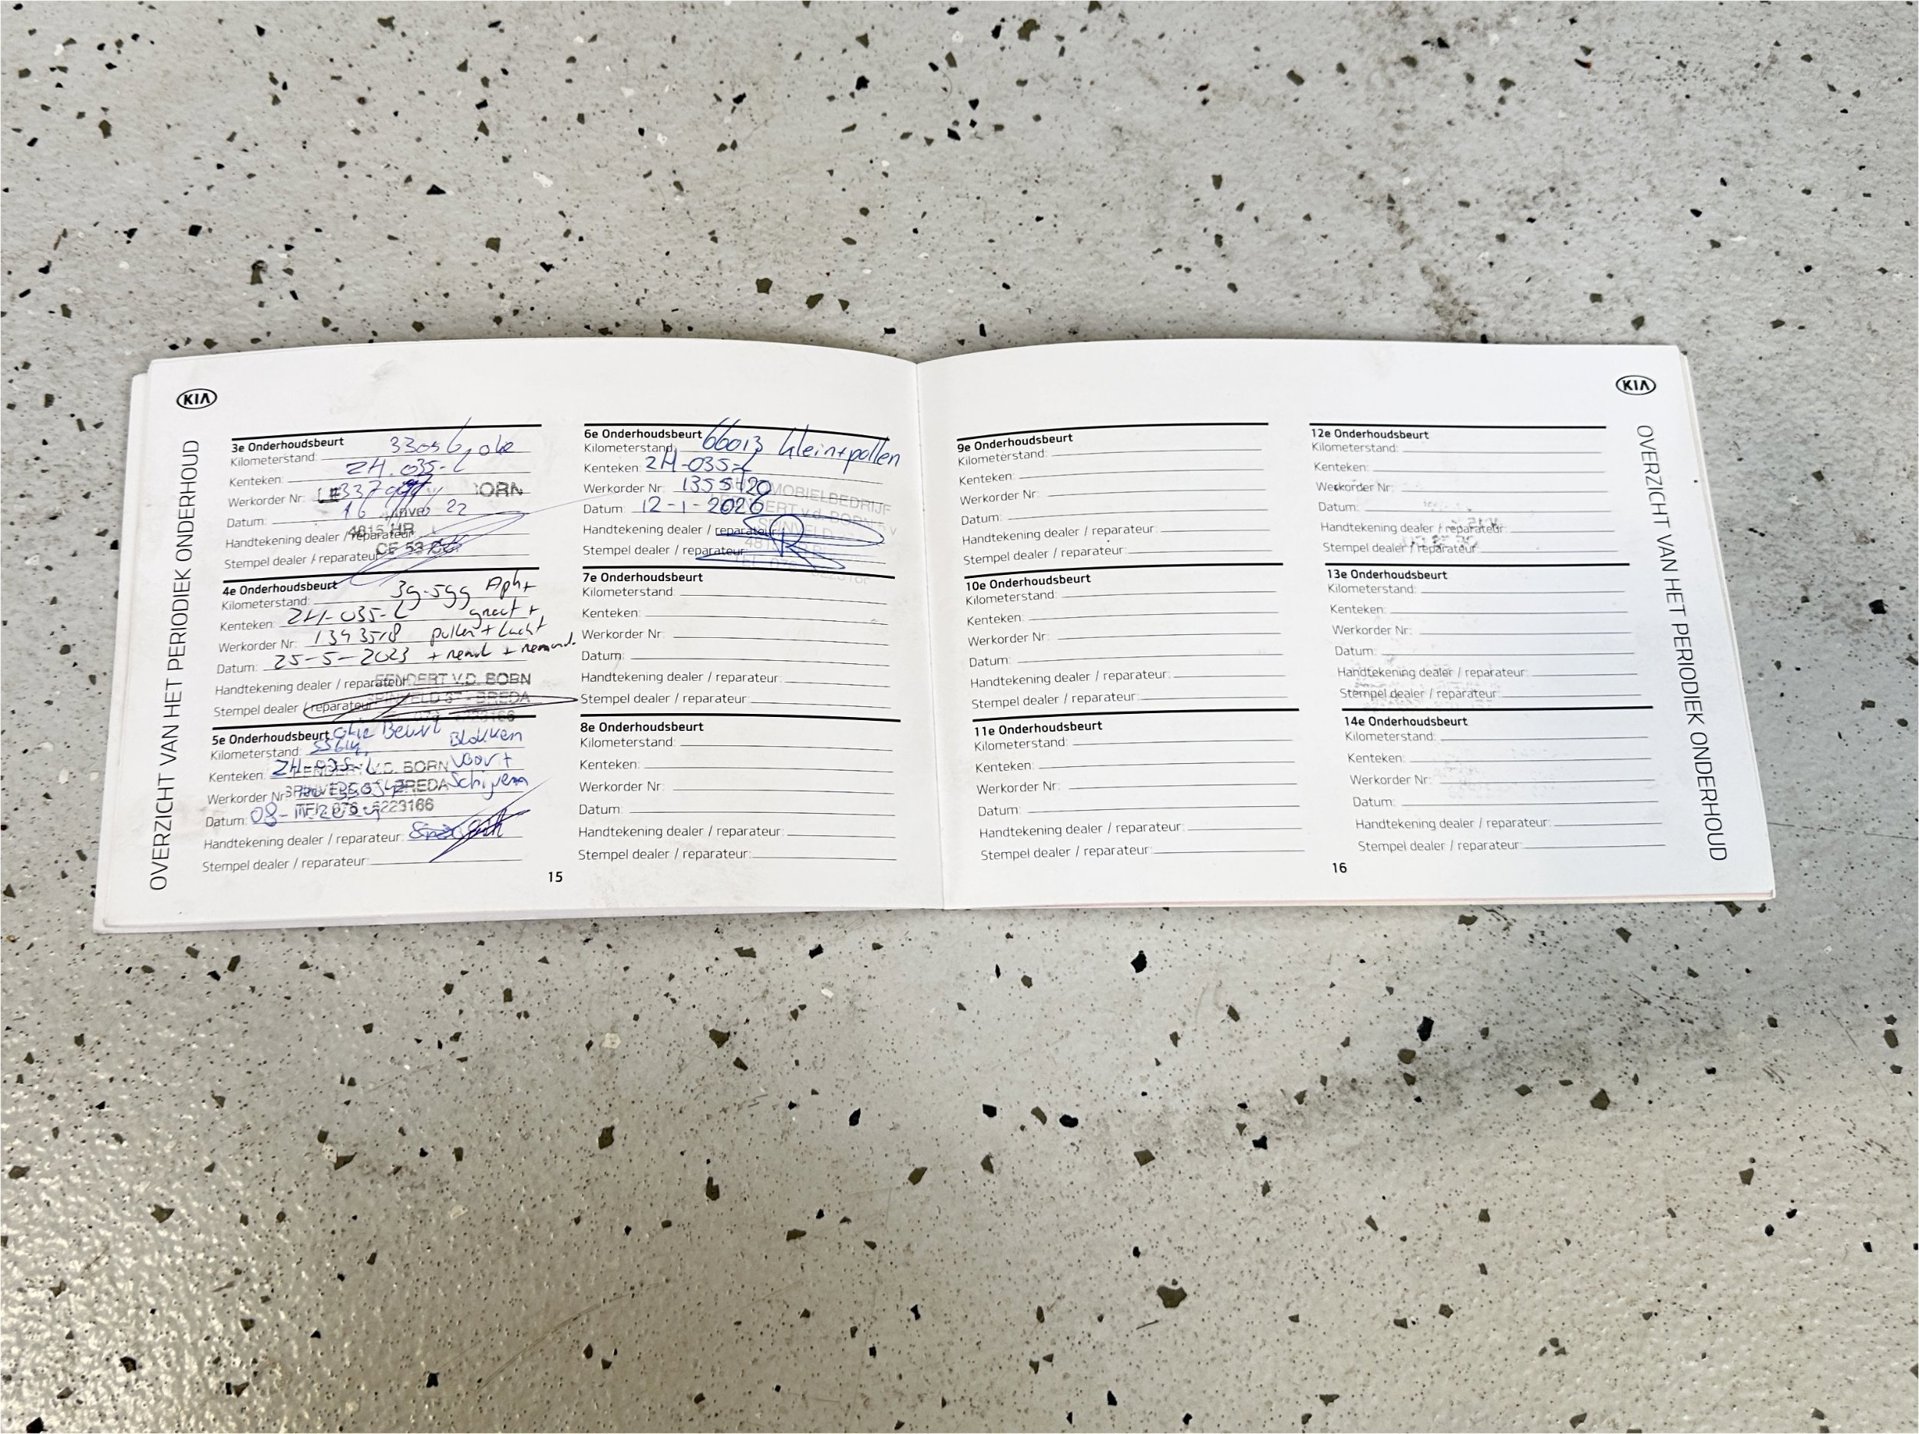 KIA
OVERZICHT VAN HET PERIODIEK ONDERHOUD
3e Onderhoudsbeurt
Kilometerstand: 33056, olie
Kenteken: ZH-035-L
Werkorder Nr: BORN
Datum: 16 22
4815 HR
Handtekening dealer / reparateur:
Stempel dealer / reparateur:
4e Onderhoudsbeurt
Kilometerstand: 39.599 Apk+
Kenteken: ZH-035-L groot +
Werkorder Nr: 1343518 pollen + lucht
Datum: 25-5-2023 + remvl +
Handtekening dealer / reparateur: V.D. BORN
Stempel dealer / reparateur: SPINVELD 37 - BREDA
5e Onderhoudsbeurt Olie Beurt
Kilometerstand: Blokken
Kenteken: ZH-035-L V.D. BORN Voor +
Werkorder Nr: BREDA Schijven
Datum: 08- TEL 076 - 5223166
Handtekening dealer / reparateur:
Stempel dealer / reparateur:
15
6e Onderhoudsbeurt
Kilometerstand: 66013 klein+pollen
Kenteken: ZH-035-L
Werkorder Nr: 1355420 AUTOMOBIELBEDRIJF
Datum: 12-1-2026
Handtekening dealer / reparateur: SPINVELD
Stempel dealer / reparateur:
7e Onderhoudsbeurt
Kilometerstand:
Kenteken:
Werkorder Nr:
Datum:
Handtekening dealer / reparateur:
Stempel dealer / reparateur:
8e Onderhoudsbeurt
Kilometerstand:
Kenteken:
Werkorder Nr:
Datum:
Handtekening dealer / reparateur:
Stempel dealer / reparateur:
9e Onderhoudsbeurt
Kilometerstand:
Kenteken:
Werkorder Nr:
Datum:
Handtekening dealer / reparateur:
Stempel dealer / reparateur:
10e Onderhoudsbeurt
Kilometerstand:
Kenteken:
Werkorder Nr:
Datum:
Handtekening dealer / reparateur:
Stempel dealer / reparateur:
11e Onderhoudsbeurt
Kilometerstand:
Kenteken:
Werkorder Nr:
Datum:
Handtekening dealer / reparateur:
Stempel dealer / reparateur:
16
12e Onderhoudsbeurt
Kilometerstand:
Kenteken:
Werkorder Nr:
Datum:
Handtekening dealer / reparateur:
Stempel dealer / reparateur:
13e Onderhoudsbeurt
Kilometerstand:
Kenteken:
Werkorder Nr:
Datum:
Handtekening dealer / reparateur:
Stempel dealer / reparateur:
14e Onderhoudsbeurt
Kilometerstand:
Kenteken:
Werkorder Nr:
Datum:
Handtekening dealer / reparateur:
Stempel dealer / reparateur:
KIA
OVERZICHT VAN HET PERIODIEK ONDERHOUD